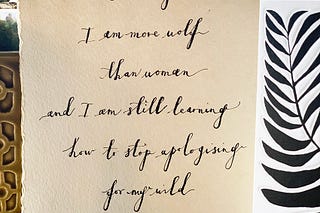 I am more wolf
than woman
and I am still learning
how to stop apologising
for my wild